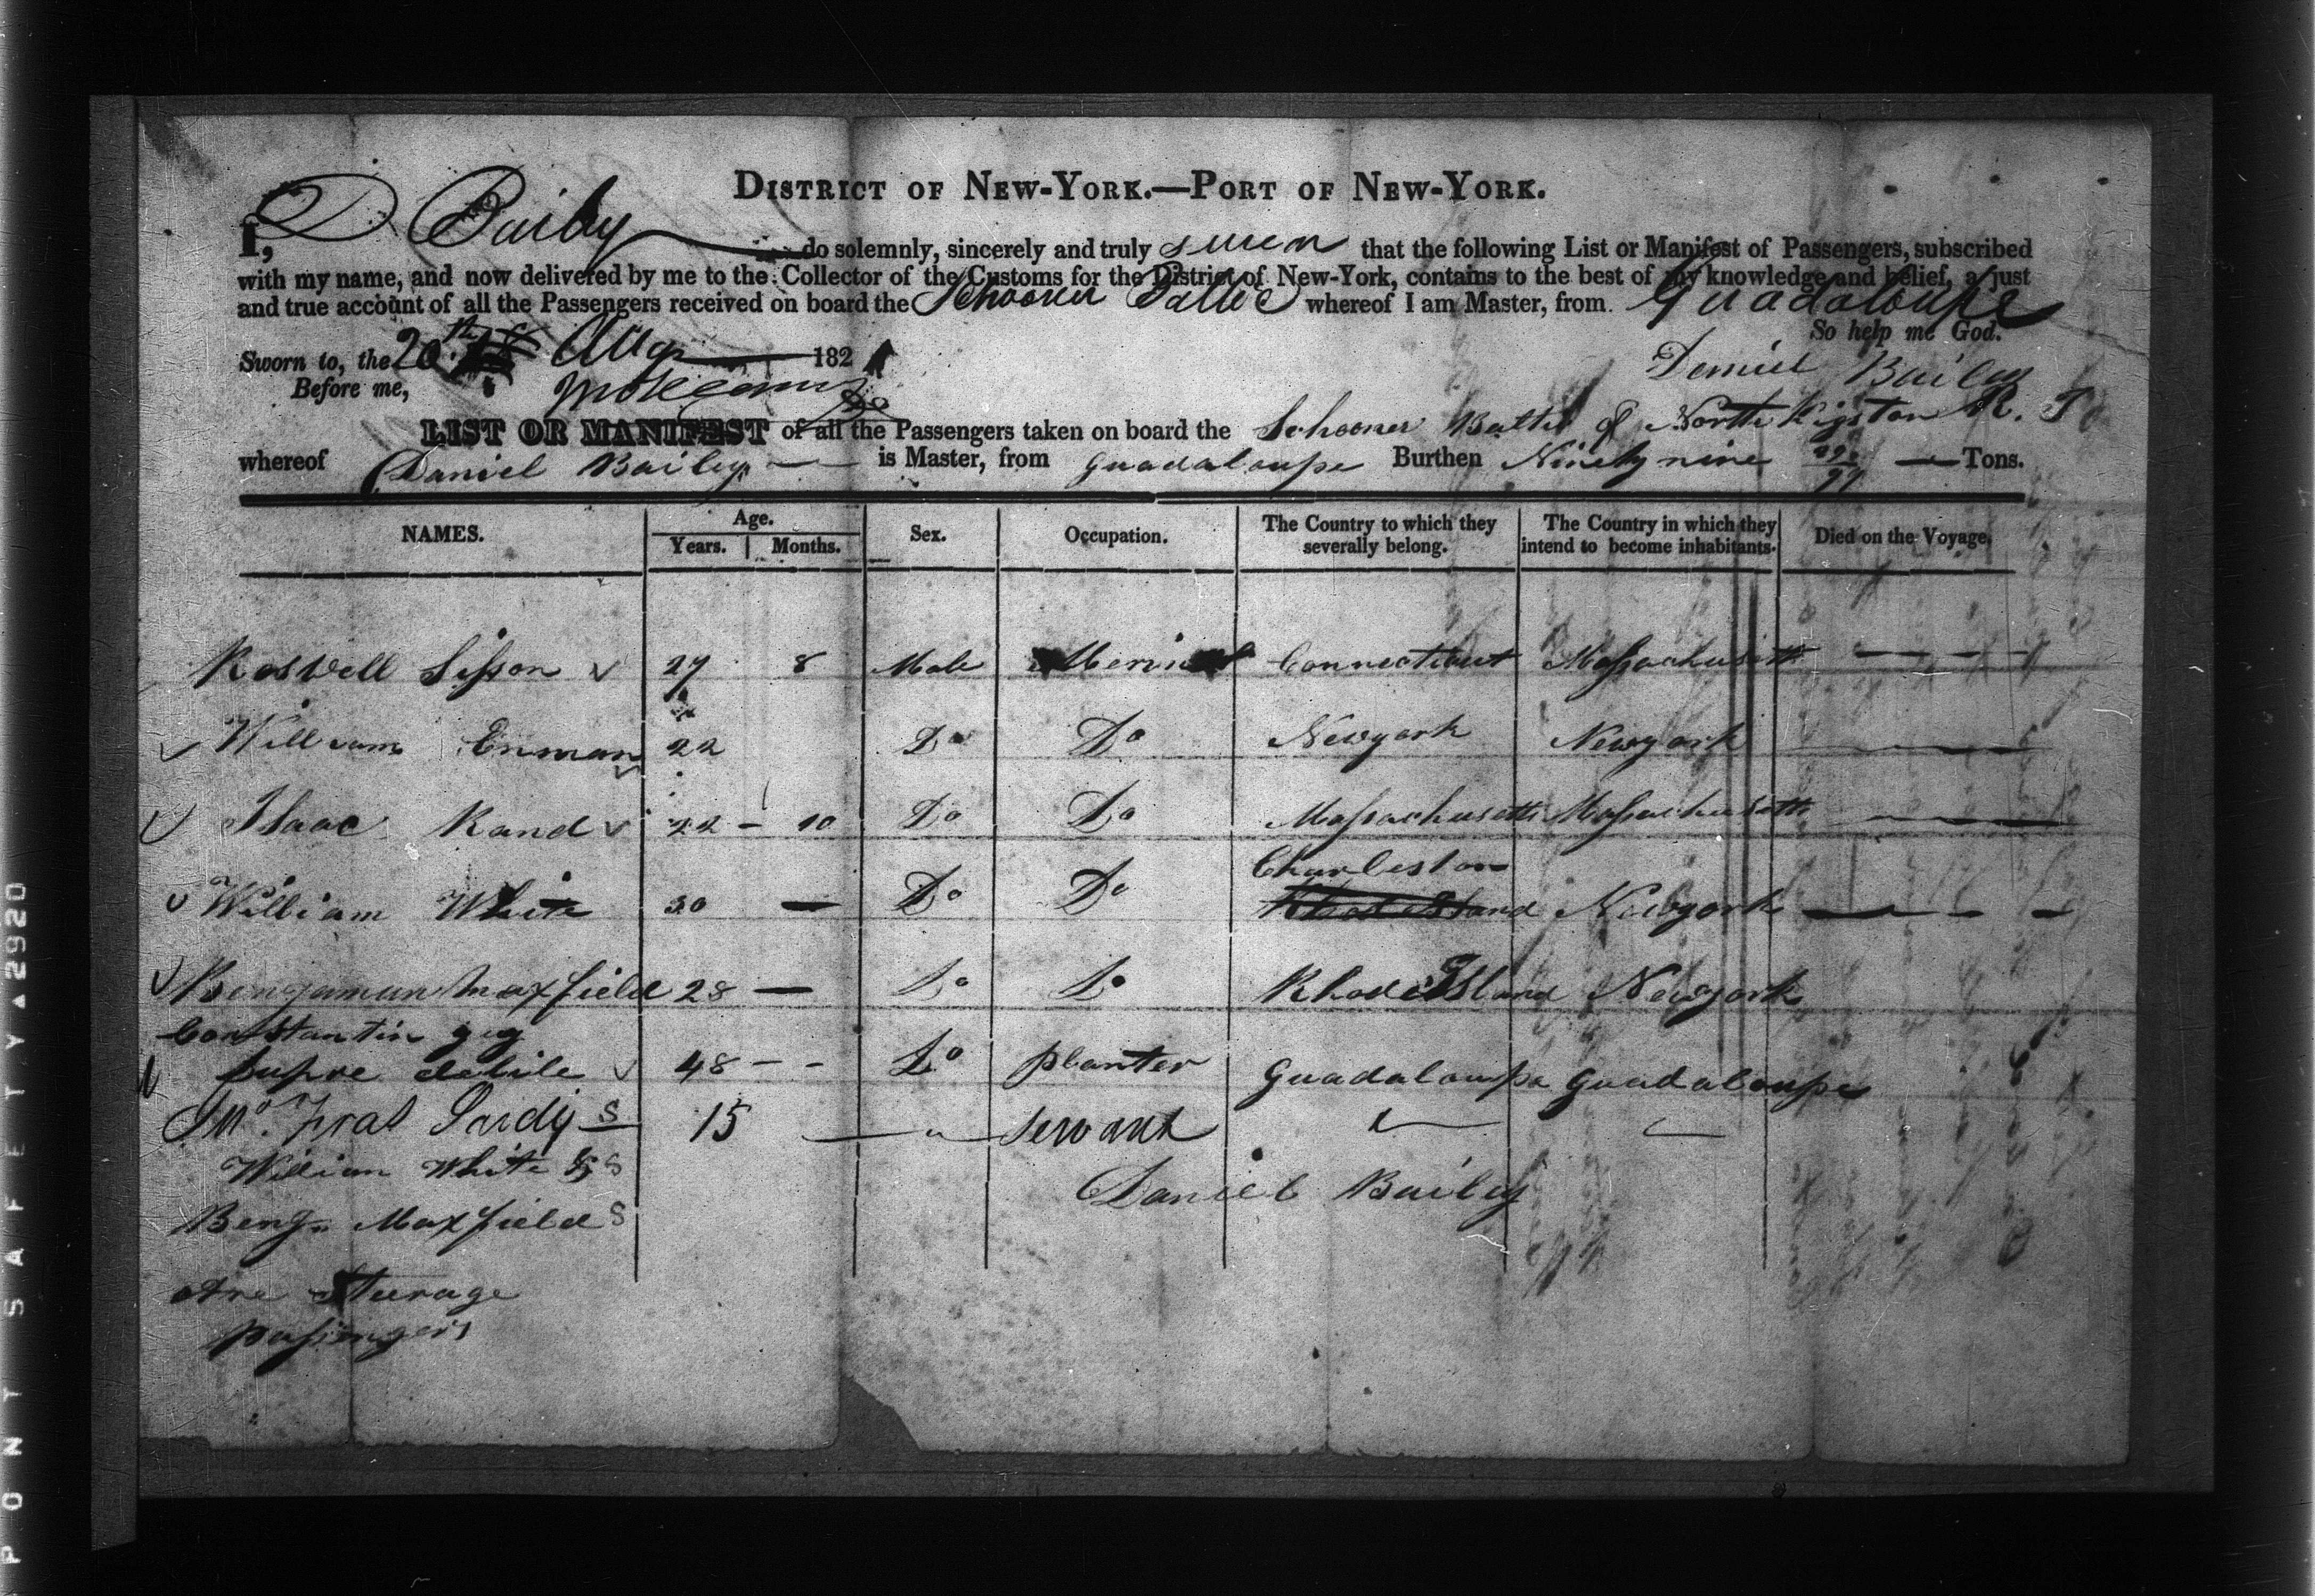 DISTRICT OF NEW-YORK.—PORT OF NEW-YORK.
I, D Baily do solemnly, sincerely and truly swear that the following List or Manifest of Passengers, subscribed
with my name, and now delivered by me to the Collector of the Customs for the District of New-York, contains to the best of my knowledge and belief, a just
and true account of all the Passengers received on board the Schooner whereof I am Master, from Guadaloupe
So help me God.
Sworn to, the 20th Aug 1821
Daniel Bailey
Before me,
LIST OR MANIFEST of all the Passengers taken on board the Schooner of North Kigston R. I
whereof Daniel Bailey is Master, from Guadaloupe Burthen Ninety nine Tons.
NAMES. Age. Sex. Occupation. The Country to which they severally belong. The Country in which they intend to become inhabitants. Died on the Voyage.
Years. Months.
Roswell Sisson 27 8 Male Connecticut Massachusetts
William Enman 22 Do Do Newyork Newyork
Isaac Rand 22 - 10 Do Do Massachusetts Massachusetts
Charleston
William White 30 — Do Do Rhode Island Newyork
Bengamun Maxfield 28 — Do Do Rhode Island Newyork
Constantin
48 - - Do planter Guadaloupe Guadaloupe
S 15 servant
William White S
Daniel Bailey
Beng. Maxfield S
Are Steerage
passengers
PONT SAFETY▲2920